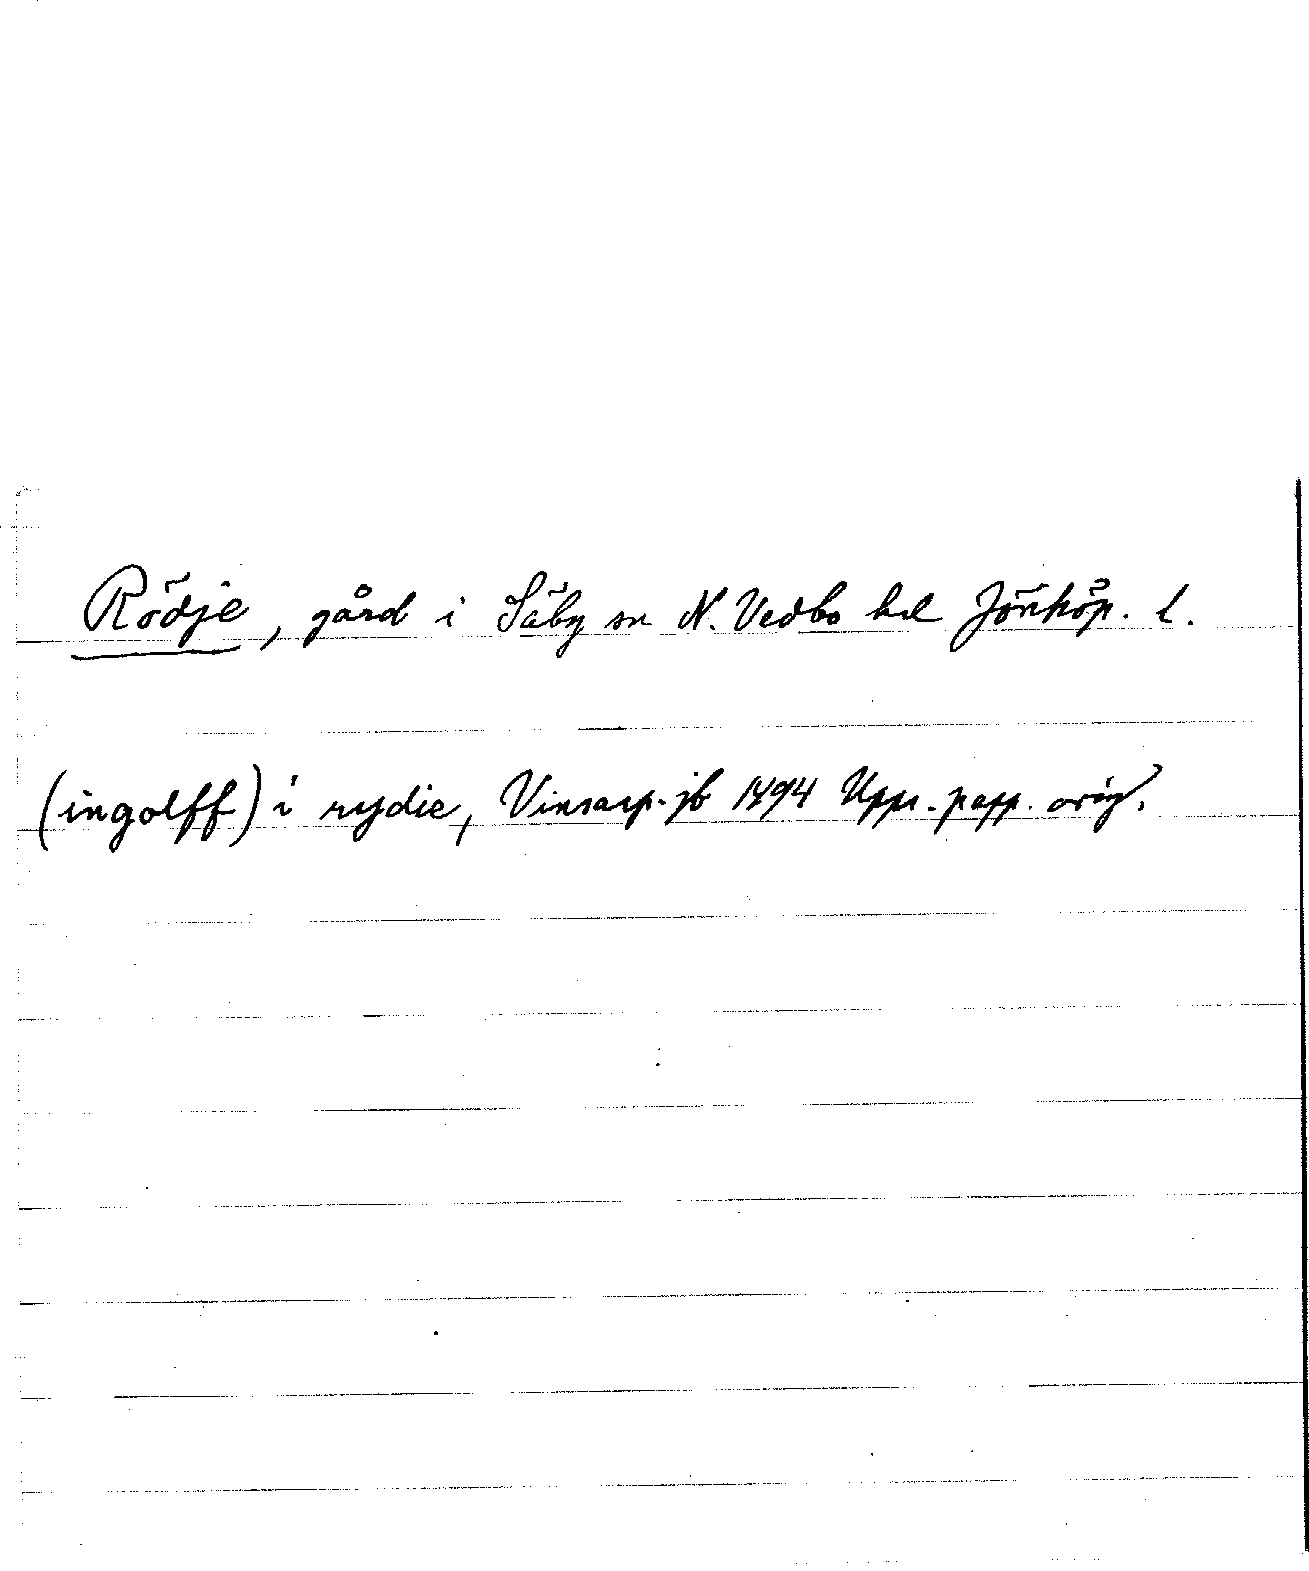 Rödje, gård i Säby sn N. Vedbo hd Jönköp. l.
(ingolff) i rydie, Vinsarp. jb 1494 Upps. papp. orig.